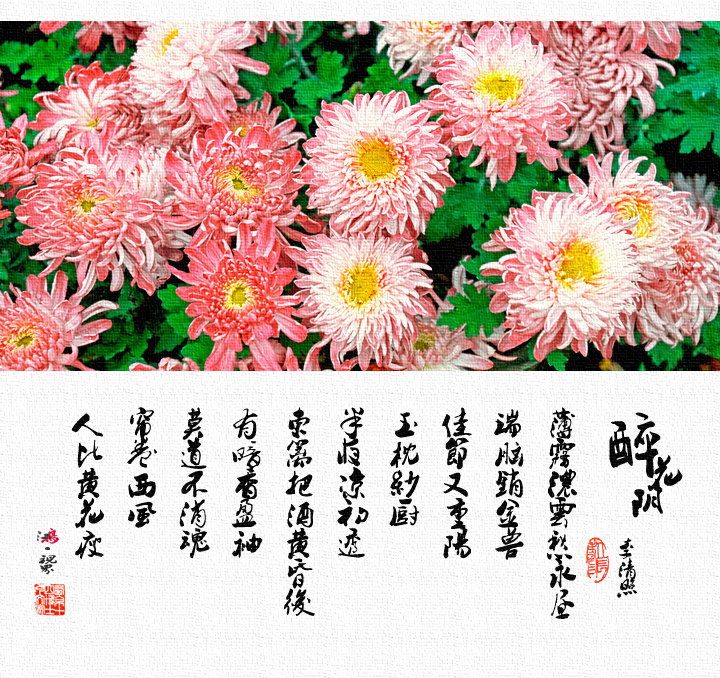 醉花阴
李清照
薄霧濃雲愁永昼
瑞脑銷金兽
佳節又重陽
玉枕紗厨
半夜凉初透
東篱把酒黄昏後
有暗香盈袖
莫道不消魂
帘卷西風
人比黄花瘦